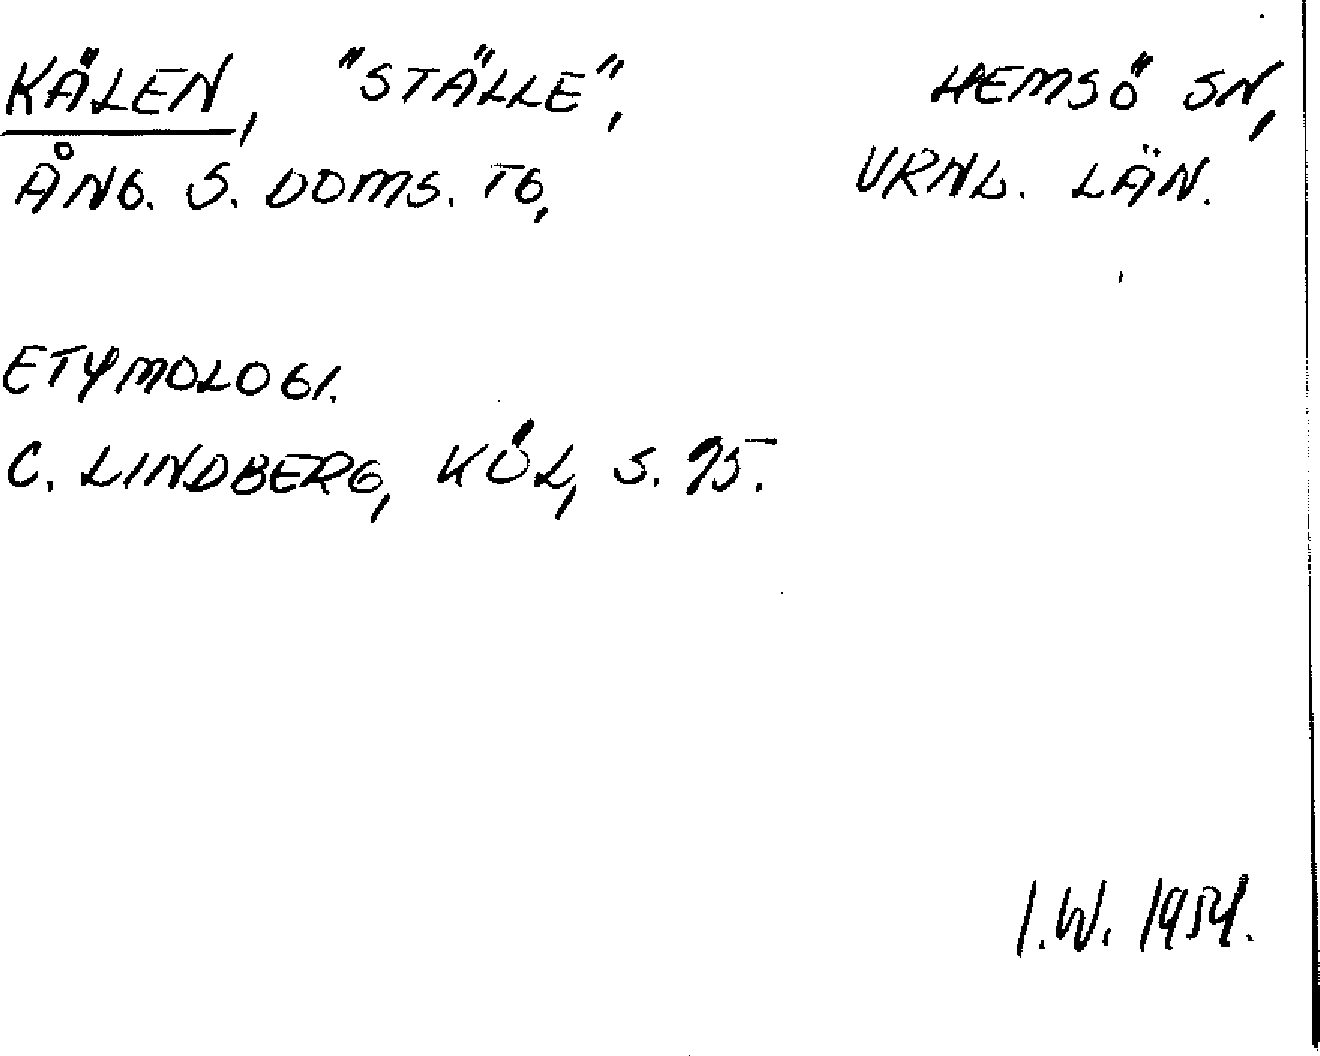 KÄLEN, "STÄLLE", HEMSÖ SN,
ÅNG. S. DOMS. TG, VRNL. LÄN.
ETYMOLOGI.
C. LINDBERG, KÖL, S. 95.
I.W. 1954.